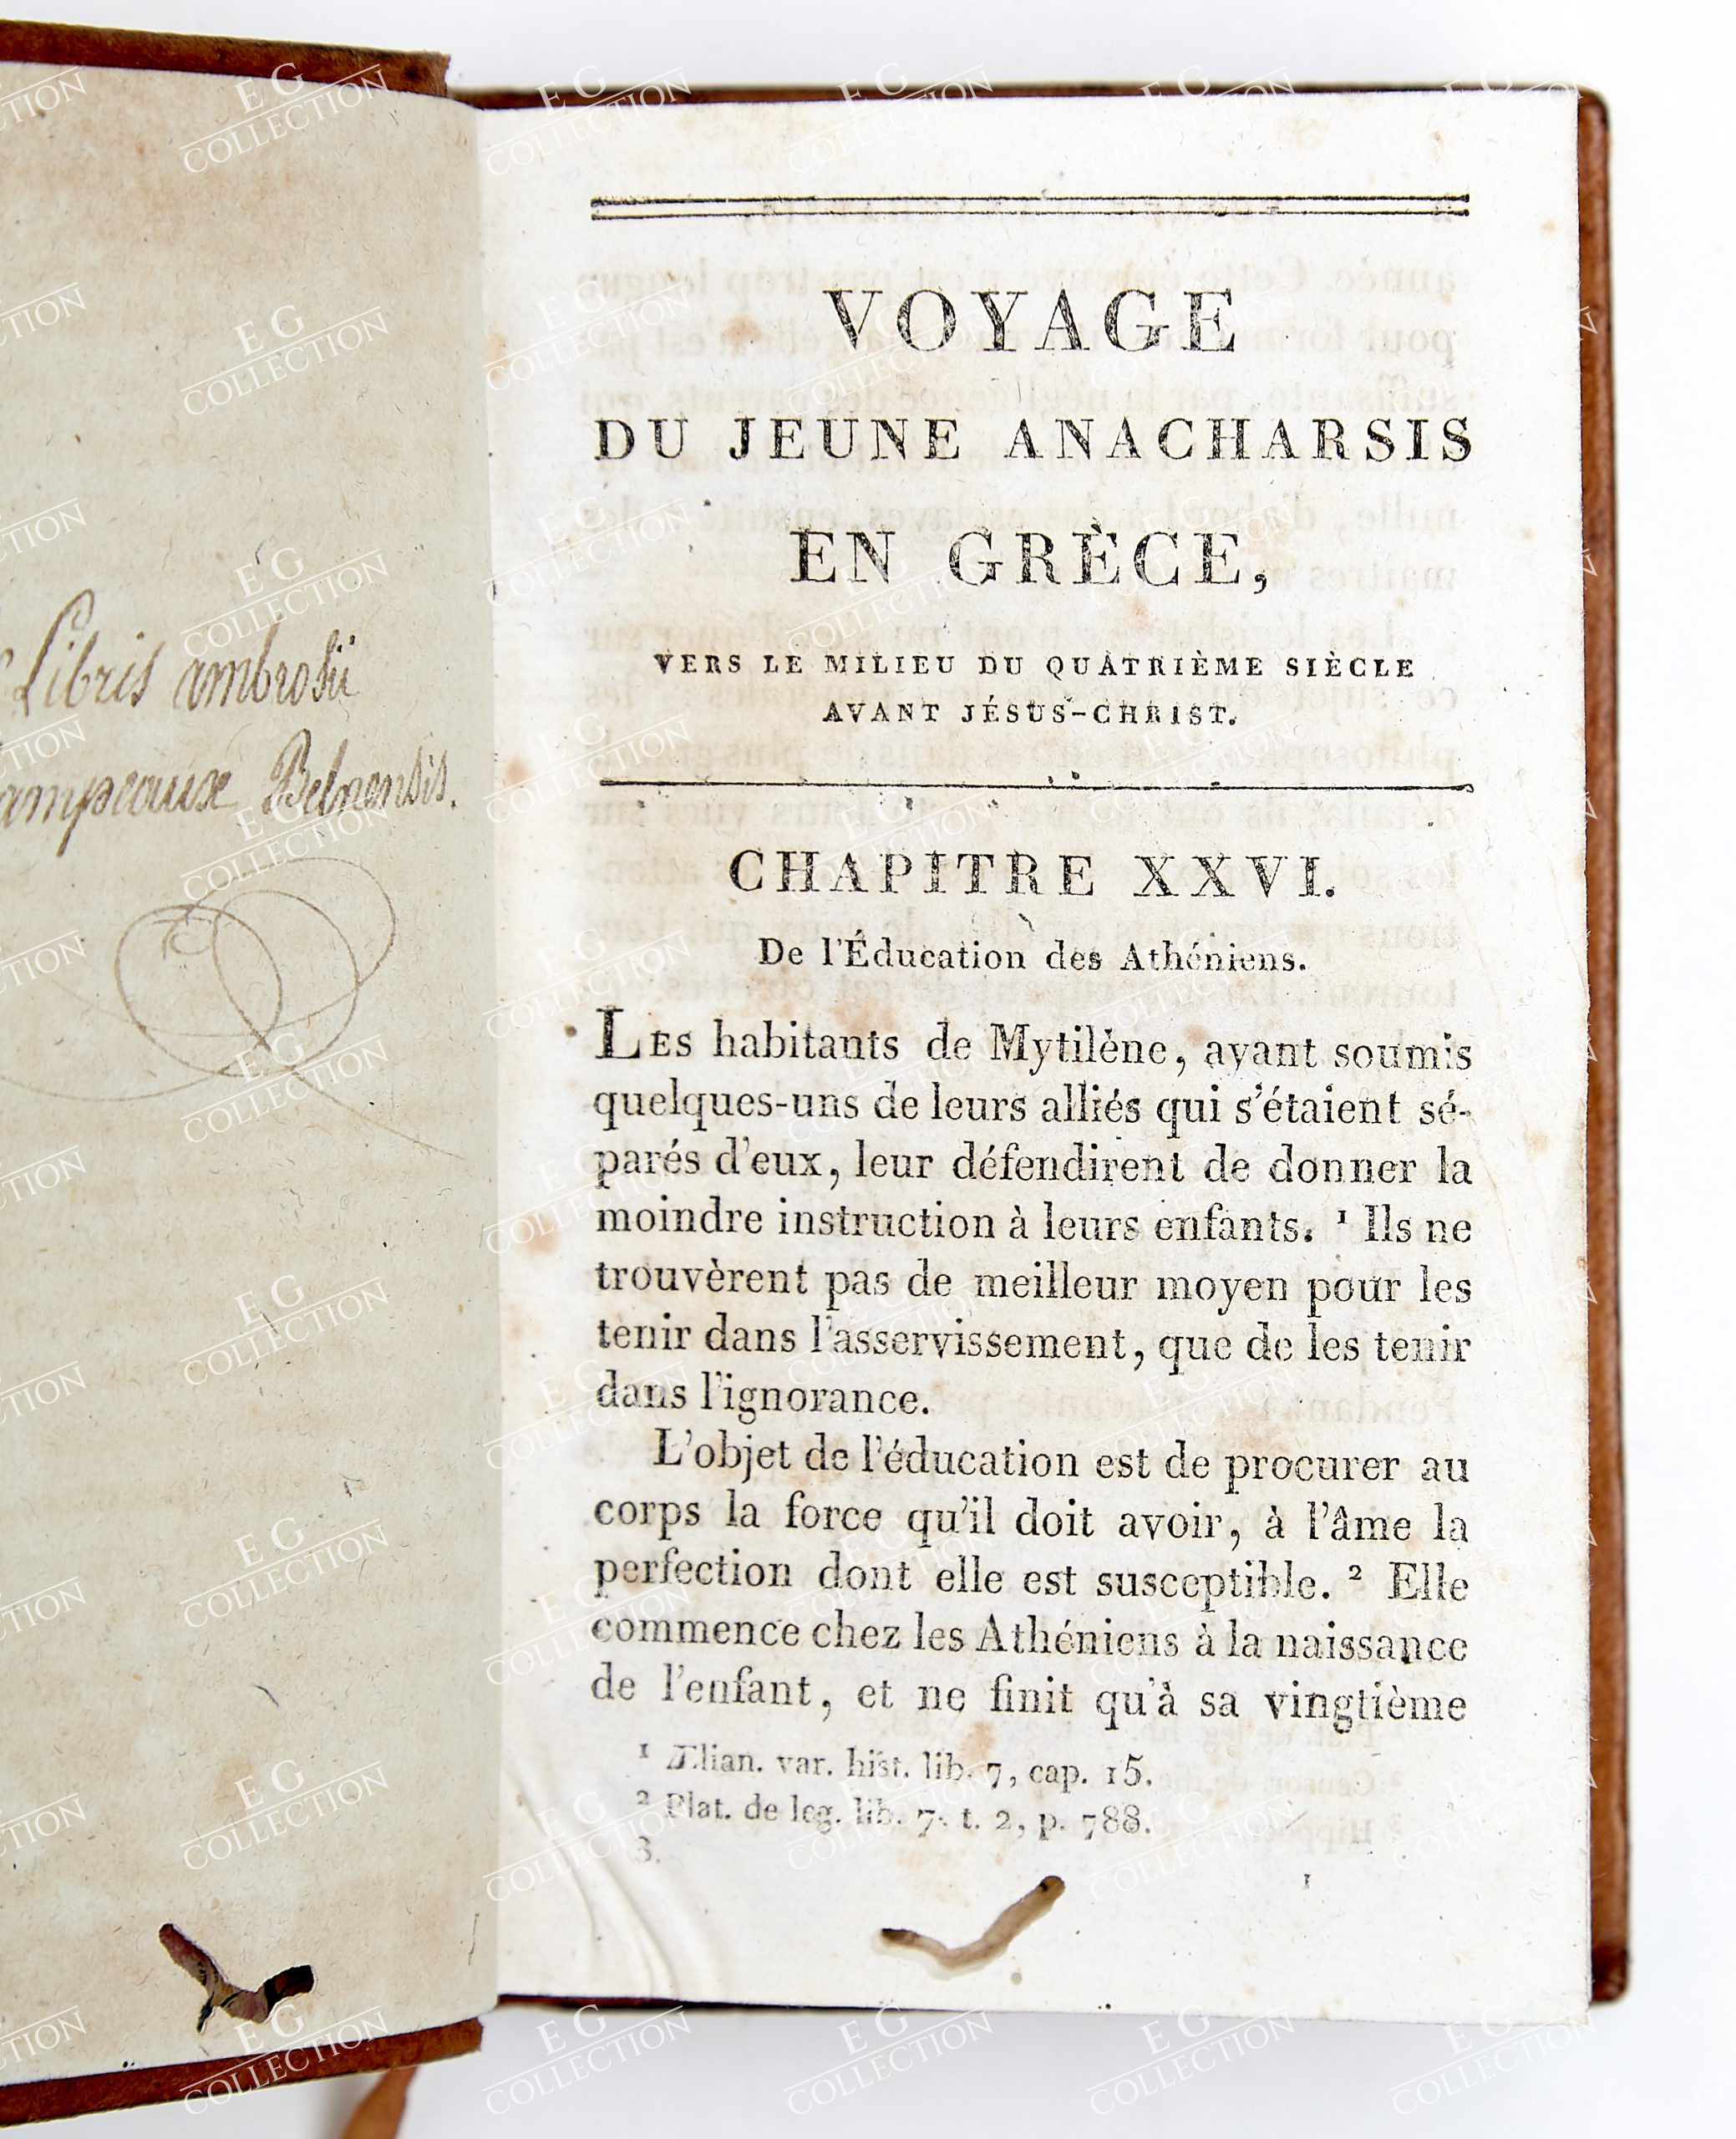 Libris ambrosii
ampeaux Belnensis.
VOYAGE
DU JEUNE ANACHARSIS
EN GRÈCE,
VERS LE MILIEU DU QUATRIÈME SIÈCLE
AVANT JÉSUS-CHRIST.
CHAPITRE XXVI.
De l'Éducation des Athéniens.
LES habitants de Mytilène, ayant soumis
quelques-uns de leurs alliés qui s'étaient sé-
parés d'eux, leur défendirent de donner la
moindre instruction à leurs enfants. ¹ Ils ne
trouvèrent pas de meilleur moyen pour les
tenir dans l'asservissement, que de les tenir
dans l'ignorance.
L'objet de l'éducation est de procurer au
corps la force qu'il doit avoir, à l'âme la
perfection dont elle est susceptible. ² Elle
commence chez les Athéniens à la naissance
de l'enfant, et ne finit qu'à sa vingtième
¹ Ælian. var. hist. lib. 7, cap. 15.
² Plat. de leg. lib. 7. t. 2, p. 788.
3.
1
E G
COLLECTION